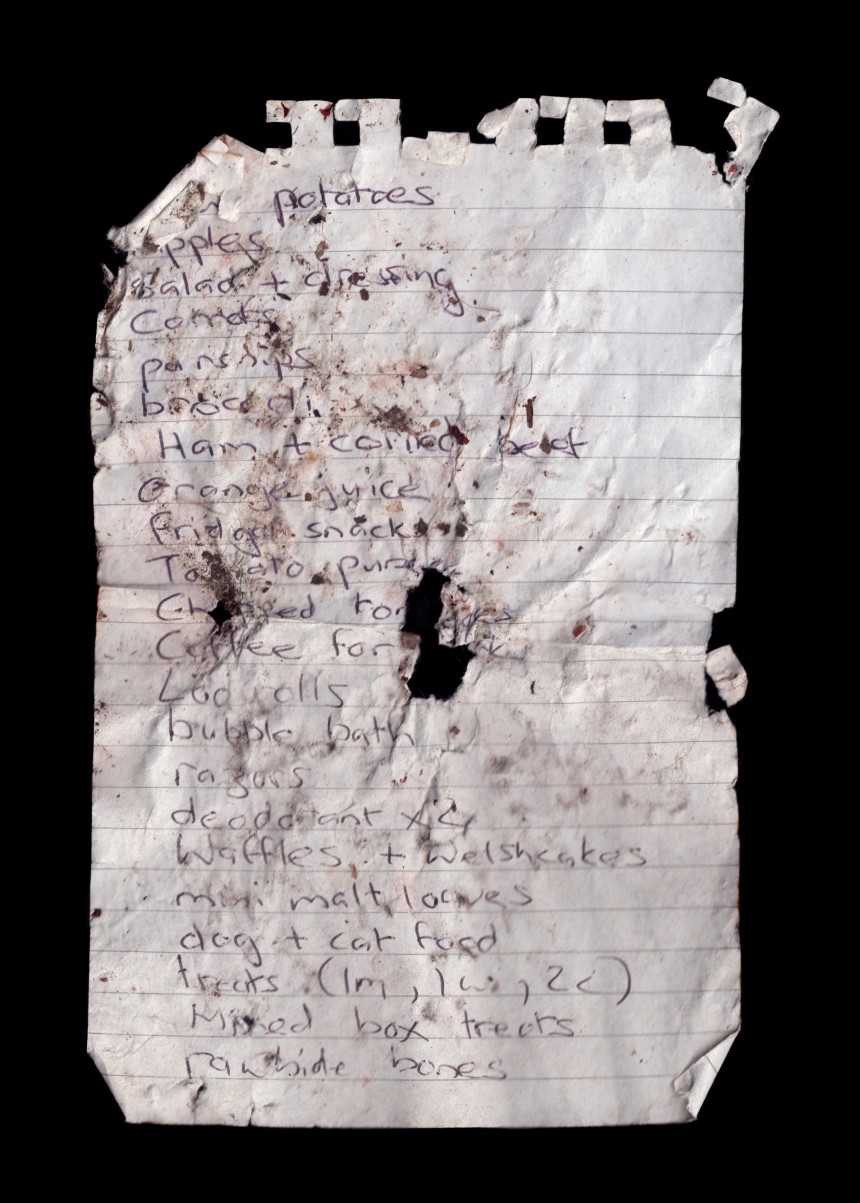 potatoes
apples
Salad + dressing
Carrots
parsnips
broccoli
Ham + corned beef
Orange juice
fridge snacks
Tomato puree
Chopped tom
Coffee for
Loo rolls
bubble bath
razors
deodorant x 2
Waffles + Welshcakes
mini malt loaves
dog + cat food
treats (1m, 1w, 2c)
Mixed box treats
rawhide bones